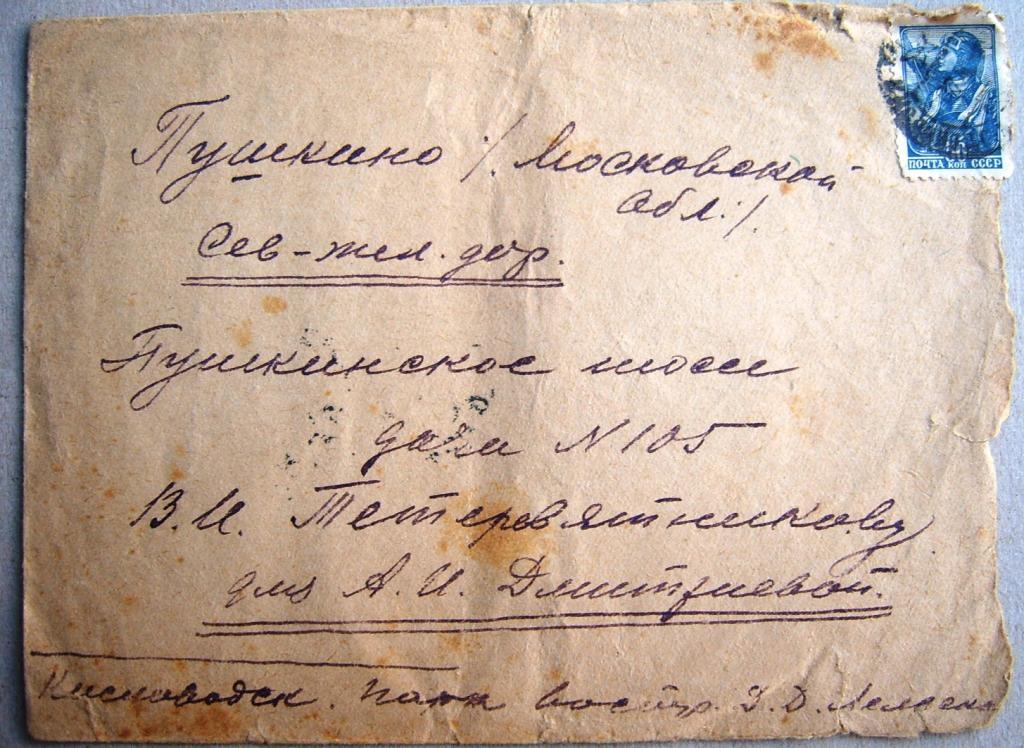 ПОЧТА КОП СССР
Пушкино /Московской
обл:/
Сев-жел. дор.
Пушкинское шоссе
дача N 105
В. И. Тетеревятникову
для А. И. Дмитриевой.
Кисловодск. Парк Д. Д.